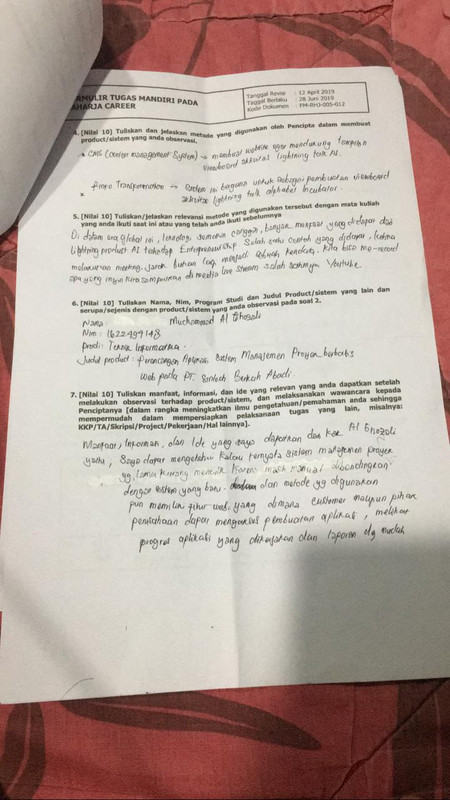 RMULIR TUGAS MANDIRI PADA
AHARJA CAREER
Tanggal Revisi : 12 April 2019
Tanggal Berlaku : 28 Juni 2019
Kode Dokumen : FM-RHJ-005-012
4. [Nilai 10] Tuliskan dan jelaskan metode yang digunakan oleh Pencipta dalam membuat
product/sistem yang anda observasi.
* CMS (Center management System) → membuat website agar mendukung tampilan
viewboard aktivitas lightning talk AI.
* → Sistem ini berguna untuk sebagai pembuatan viewboard
aktivitas lightning talk alphabet Incubator.
5. [Nilai 10] Tuliskan/jelaskan relevansi metode yang digunakan tersebut dengan mata kuliah
yang anda ikuti saat ini atau yang telah anda ikuti sebelumnya
Di dalam era global ini, teknologi semakin canggih, banyak manfaat yang didapat dari
lightning product AI terhadap Entrepreneurship Salah satu contoh yang didapat, ketika
melakukan meeting jarak bukan lagi menjadi sebuah kendala. Kita bisa me-record
apa yang ingin kita sampaikan di media live stream salah satunya Youtube.
6. [Nilai 10] Tuliskan Nama, Nim, Program Studi dan Judul Product/sistem yang lain dan
serupa/sejenis dengan product/sistem yang anda observasi pada soal 2.
Nama : Muchammad Al Ghozali
Nim : 1622499148
prodi : Teknik Informatika.
Judul product : Perancangan Aplikasi Sistem Manajemen Proyek berbasis
web pada PT. Sintech Berkah Abadi
7. [Nilai 10] Tuliskan manfaat, informasi, dan ide yang relevan yang anda dapatkan setelah
melakukan observasi terhadap product/sistem, dan melaksanakan wawancara kepada
Penciptanya [dalam rangka meningkatkan ilmu pengetahuan/pemahaman anda sehingga
mempermudah dalam mempersiapkan pelaksanaan tugas yang lain, misalnya:
KKP/TA/Skripsi/Project/Pekerjaan/Hal lainnya].
Manfaat, Informasi, dan Ide yang saya dapatkan dari Kak Al Ghozali
yaitu, Saya dapat mengetahui kalau ternyata sistem manajemen proyek
yg lama kurang menarik karena masih manual dibandingkan
dengan sistem yang baru. dan metode yg digunakan
pun memiliki fitur web, yang dimana customer maupun pihak
perusahaan dapat mengakses pembuatan aplikasi, melihat
progres aplikasi yang dikerjakan dan laporan dg mudah